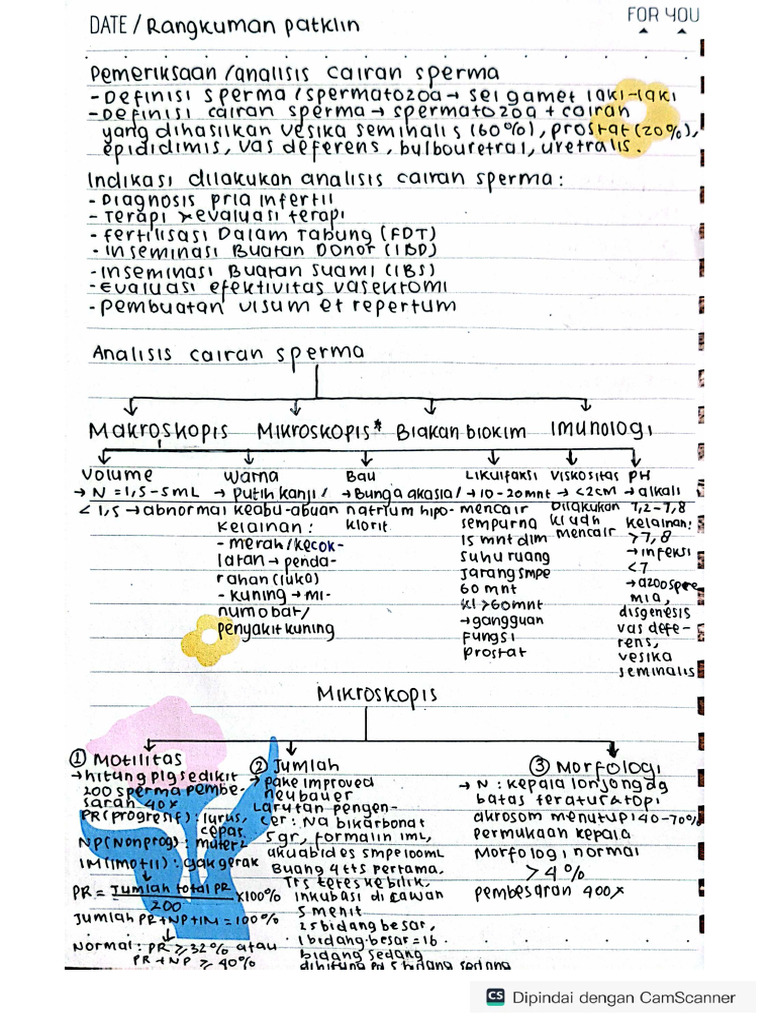 DATE / Rangkuman patklin
FOR YOU
Pemeriksaan/analisis cairan sperma
- Definisi sperma/spermatozoa → sel gamet laki-laki
- Definisi cairan sperma → spermatozoa + cairan
yang dihasilkan vesika seminalis (60%), prostat (20%),
epididimis, vas deferens, bulbouretral, uretralis.
Indikasi dilakukan analisis cairan sperma:
- Diagnosis pria infertil
- Terapi & evaluasi terapi
- Fertilisasi Dalam Tabung (FDT)
- Inseminasi Buatan Donor (IBD)
- Inseminasi Buatan Suami (IBS)
- Evaluasi efektivitas vasektomi
- Pembuatan visum et repertum
Analisis cairan sperma
Makroskopis Mikroskopis* Biakan biokim Imunologi
Volume
→ N = 1,5-5mL
< 1,5 → abnormal
Warna
→ Putih kanji/
keabu-abuan
Kelainan:
- merah/kecok-
latan → penda-
rahan (luka)
- kuning → mi-
num obat/
penyakit kuning
Bau
→ Bunga akasia/
natrium hipo-
klorit
Likuifaksi
→ 10-20 mnt
mencair
sempurna
15 mnt dlm
suhu ruang
Jarang smpe
60 mnt
kl > 60mnt
→ gangguan
fungsi
prostat
Viskositas
→ <2cm
Dilakukan
kl udh
mencair
PH
→ alkali
7,2-7,8
Kelainan:
>7,8
→ infeksi
<7
→ azoosper
mia,
disgenesis
vas defe-
rens,
vesika
seminalis
Mikroskopis
① Motilitas
→ hitung plg sedikit
200 sperma pembe-
saran 40x
PR (progresif): lurus,
cepas
NP (Nonprog): muter2
IM (Imotil): gak gerak
PR = Jumlah total PR
200
x100%
Jumlah PR+NP+IM = 100%
Normal: PR ≥ 32% atau
PR+NP ≥ 40%
② Jumlah
→ pake improved
neubauer
Larutan pengen-
cer: Na bikarbonat
5gr, formalin 1mL,
akuabides smpe 100mL
Buang 4 tts pertama,
Trs tetes ke bilik,
inkubasi di cawan
5 menit
25 bidang besar,
1 bidang besar = 16
bidang sedang
dihitung pd 5 bidang sedang
③ Morfologi
→ N : kepala lonjong dg
batas teratur & topi
akrosom menutupi 40-70%
permukaan kepala
Morfologi normal
> 4%
pembesaran 400x
CS Dipindai dengan CamScanner